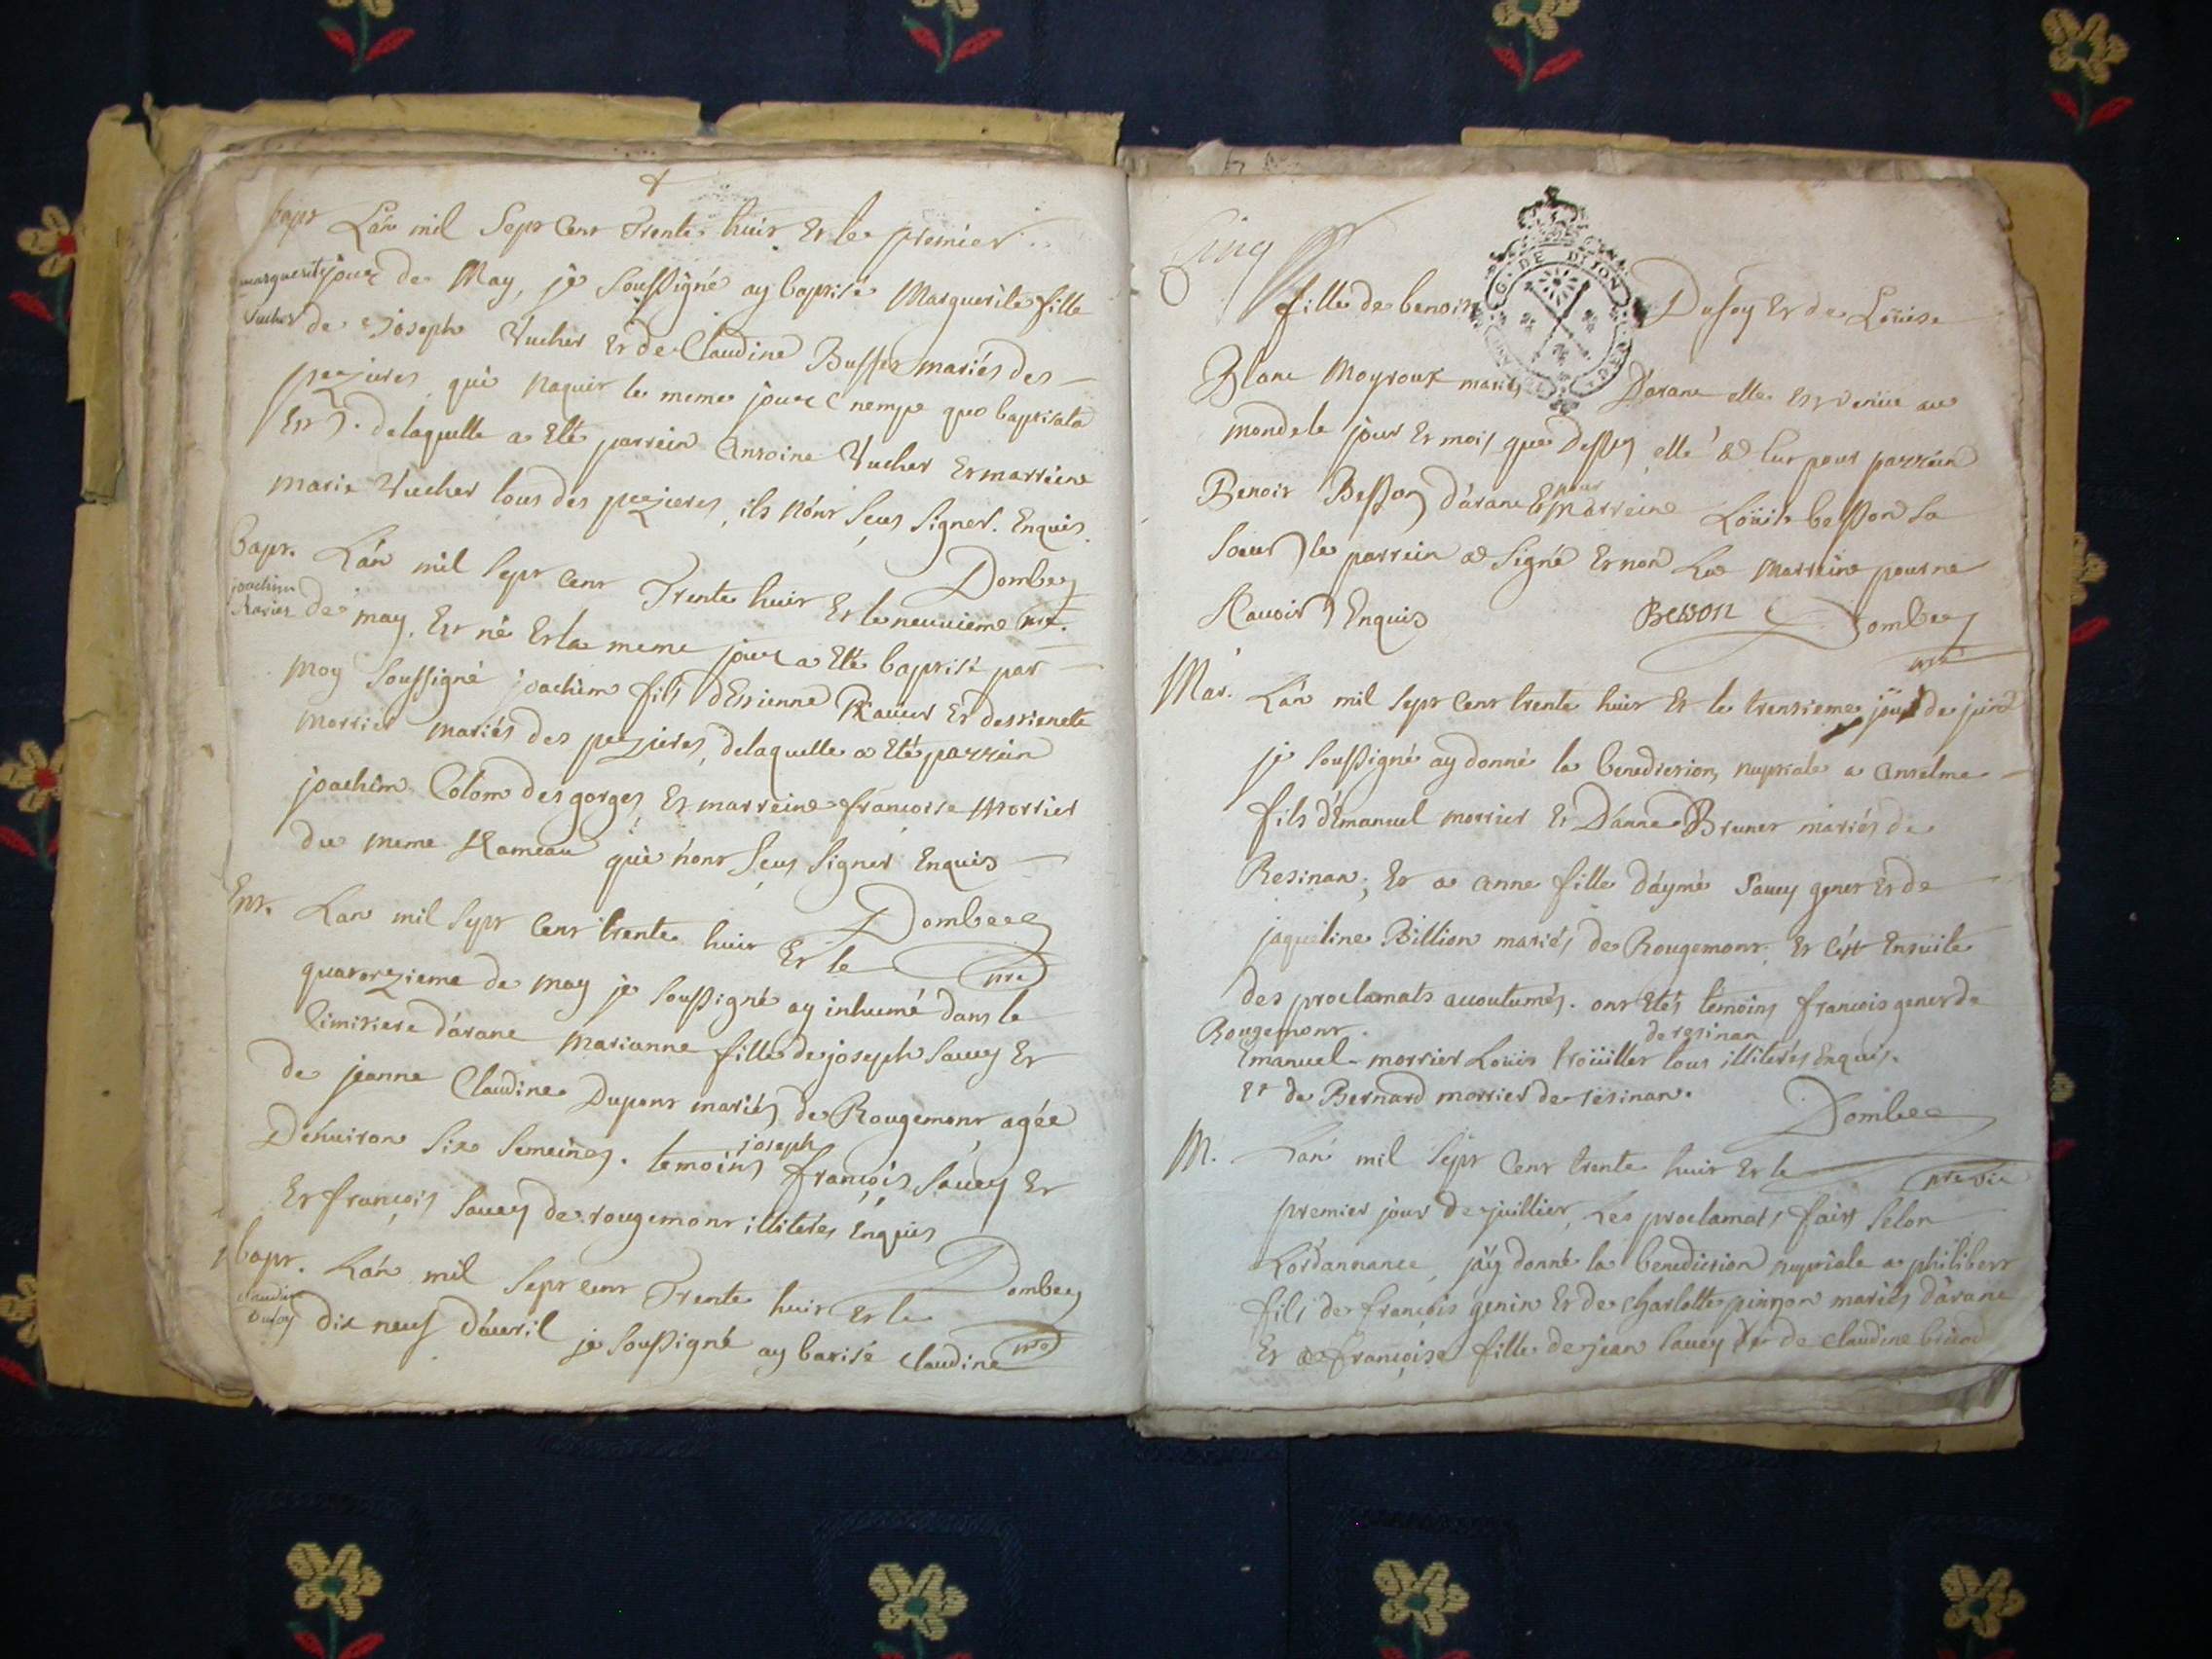 bapt L'an mil Sept Cent Trente huit Et le premier
marguerite jour de May, je soussigné ay baptisé Marguerite fille
Vucher de joseph Vucher Et de Claudine Buffet mariés des
pezieres qui naquit le meme jour
Est. delaquelle a Eté parrein Antoine Vucher Et marreine
marie Vucher tous des pezieres, ils n'ont sçus signer. Enquis.
Dombey
bapt. L'an mil sept cent Trente huit Et le neuvieme
joachim Ravier de may. Est né Et la meme jour a Eté baptisé par
moy soussigné joachim fils d'Estienne Ravier Et
morrier mariés des pezieres, delaquelle a Eté parrein
joachim Colom des gorges Et marreine francoise Morrier
du meme Hameau qui n'ont sçus signer Enquis
Dombey
Ent. Lan mil sept cent trente huit Et le
quatorzieme de may je soussigné ay inhumé dans le
cimitiere d'arane marianne fille de joseph Savey Et
de jeanne Claudine Dupont mariés de Rougemont agée
D'enuiron six semeines. temoins joseph françois Savey Et
Et françois Savey de rougemont illiterés Enquis
Dombey
bapt. L'an mil sept cent Trente huit Et le
claudine Dufoy dix neuf d'avril je soussigné ay batisé claudine
Cinq
G. DE DIJON
fille de benoit Dufoy Et de Loüise
Blanc Moyroux mariés D'arane elle Est venüe au
monde le jour Et mois que dessus elle a Eut pour parrein
Benoit Besson d'arane Et pour marreine Loüise besson sa
soeur le parrein a signé Et non La marreine pour ne
scavoir Enquis
Besson
Dombey
Mar. L'an mil sept cent trente huit Et le trentieme jour de juin
je soussigné ay donné la benediction nuptiale a anselme
fils d'Emanuel morrier Et D'anne Brunet mariés de
Resinan; Et a anne fille d'aymé Savey genet Et de
jaqueline Billion mariés de Rougemont. Et c'est Ensuite
des proclamats acoutumés. ont Etés temoins françois genet de
Rougemont. de resinan
Emanuel morrier Loüis troüiller tous illiterés Enquis.
Et de Bernard morrier de resinan.
Dombey
M. L'an mil sept cent trente huit Et le
premier jour de juillier, Les proclamats fait selon
L'ordannance, j'ay donné la benediction nuptiale a philibert
fils de françois genin Et de charlotte pinjon mariés d'arane
Et a françoise fille de jean Savey Et de claudine